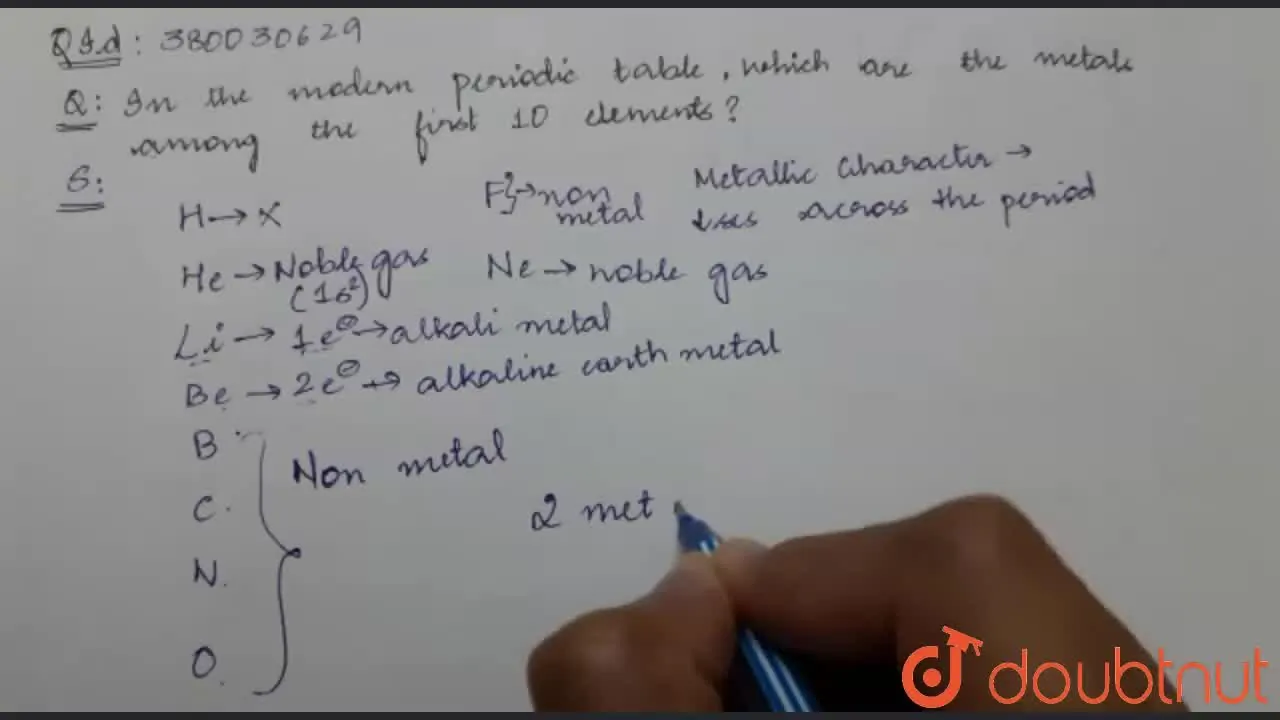 Q I.d : 380030629
Q: In the modern periodic table, which are the metals
among the first 10 elements?
S:
H → X
He → Noble gas
(1s²)
Li → 1e⊖ → alkali metal
Be → 2e⊖ → alkaline earth metal
B
C
N
O
Non metal
F → non
metal
Ne → noble gas
Metallic Character →
↓ses across the period
2 met
doubtnut